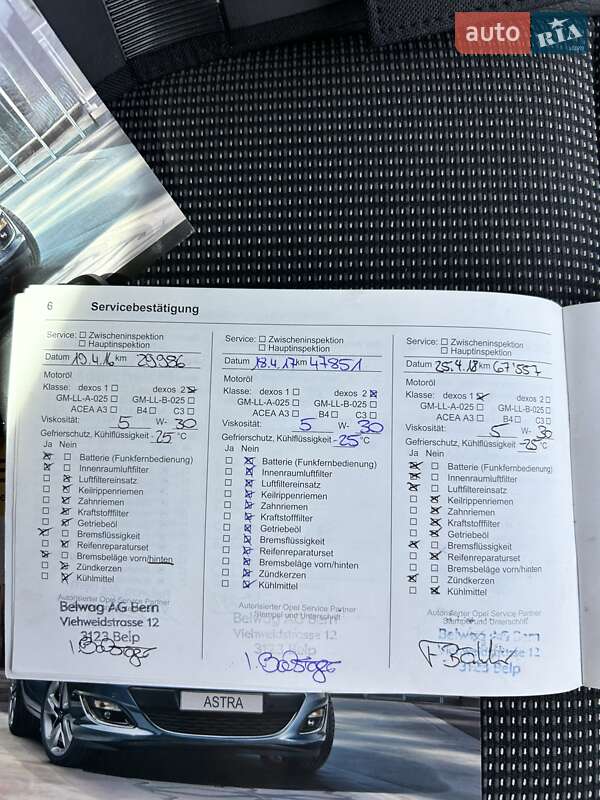 auto RIA
.com
6 Servicebestätigung
Service: Zwischeninspektion
Hauptinspektion
Datum 19.4.16 km 29986
Motoröl
Klasse: dexos 1 dexos 2
GM-LL-A-025 GM-LL-B-025
ACEA A3 B4 C3
Viskosität: 5 W- 30
Gefrierschutz, Kühlflüssigkeit -25 °C
Ja Nein
Batterie (Funkfernbedienung)
Innenraumluftfilter
Luftfiltereinsatz
Keilrippenriemen
Zahnriemen
Kraftstofffilter
Getriebeöl
Bremsflüssigkeit
Reifenreparaturset
Bremsbeläge vorn/hinten
Zündkerzen
Kühlmittel
Autorisierter Opel Service Partner
Belwag AG Bern
Viehweidstrasse 12
3123 Belp
Service: Zwischeninspektion
Hauptinspektion
Datum 18.4.17 km 47851
Motoröl
Klasse: dexos 1 dexos 2
GM-LL-A-025 GM-LL-B-025
ACEA A3 B4 C3
Viskosität: 5 W- 30
Gefrierschutz, Kühlflüssigkeit -25 °C
Ja Nein
Batterie (Funkfernbedienung)
Innenraumluftfilter
Luftfiltereinsatz
Keilrippenriemen
Zahnriemen
Kraftstofffilter
Getriebeöl
Bremsflüssigkeit
Reifenreparaturset
Bremsbeläge vorn/hinten
Zündkerzen
Kühlmittel
Autorisierter Opel Service Partner
Stempel und Unterschrift
Belwag AG Bern
Viehweidstrasse 12
3123 Belp
Service: Zwischeninspektion
Hauptinspektion
Datum 25.4.18 km 67'557
Motoröl
Klasse: dexos 1 dexos 2
GM-LL-A-025 GM-LL-B-025
ACEA A3 B4 C3
Viskosität: 5 W- 30
Gefrierschutz, Kühlflüssigkeit -25 °C
Ja Nein
Batterie (Funkfernbedienung)
Innenraumluftfilter
Luftfiltereinsatz
Keilrippenriemen
Zahnriemen
Kraftstofffilter
Getriebeöl
Bremsflüssigkeit
Reifenreparaturset
Bremsbeläge vorn/hinten
Zündkerzen
Kühlmittel
Autorisierter Opel Service Partner
Stempel und Unterschrift
Belwag AG Bern
Viehweidstrasse 12
3123 Belp
ASTRA